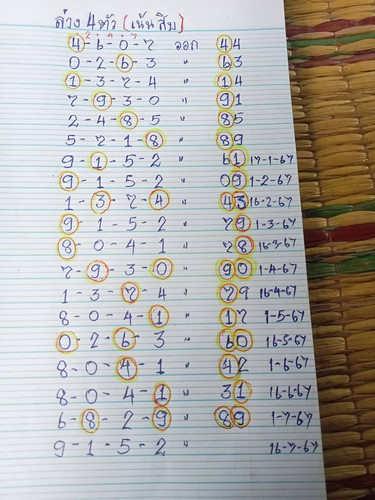 ล่าง 4 ตัว (เน้นสิบ)
4-6-0-7 ออก 44
0-2-6-3 " 63
1-3-7-4 " 14
7-9-3-0 " 91
2-4-8-5 " 85
5-7-1-8 " 89
9-1-5-2 " 61 17-1-67
9-1-5-2 " 09 1-2-67
1-3-7-4 " 43 16-2-67
9-1-5-2 " 79 1-3-67
8-0-4-1 " 78 16-3-67
7-9-3-0 " 90 1-4-67
1-3-7-4 " 79 16-4-67
8-0-4-1 " 17 1-5-67
0-2-6-3 " 60 16-5-67
8-0-4-1 " 42 1-6-67
8-0-4-1 " 31 16-6-67
6-8-2-9 " 89 1-7-67
9-1-5-2 " 16-7-67